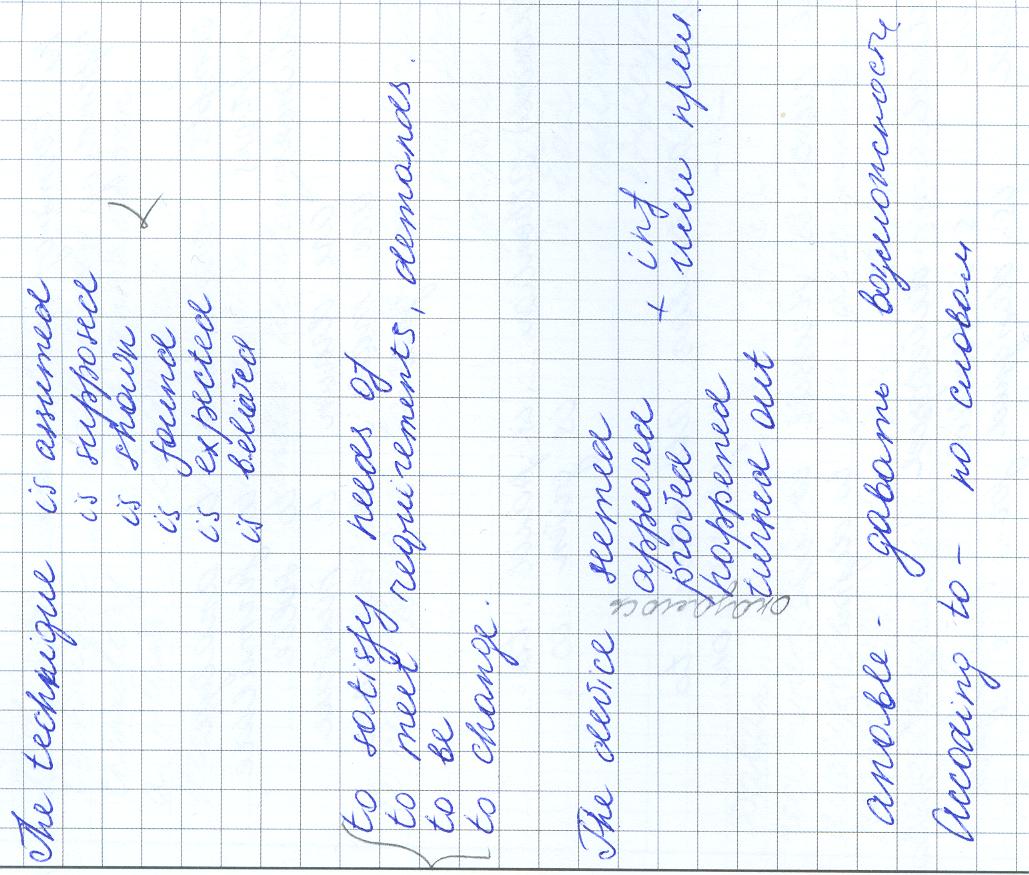 The technique is assumed
is supposed
is shown
is found
is expected
is belived
to satisfy needs of
to meet requirements, demands.
to be
to change.
The device seemed
appeared + inf.
proved или прил
happened
turned out
anable - давать возможность
Accoding to - по словам